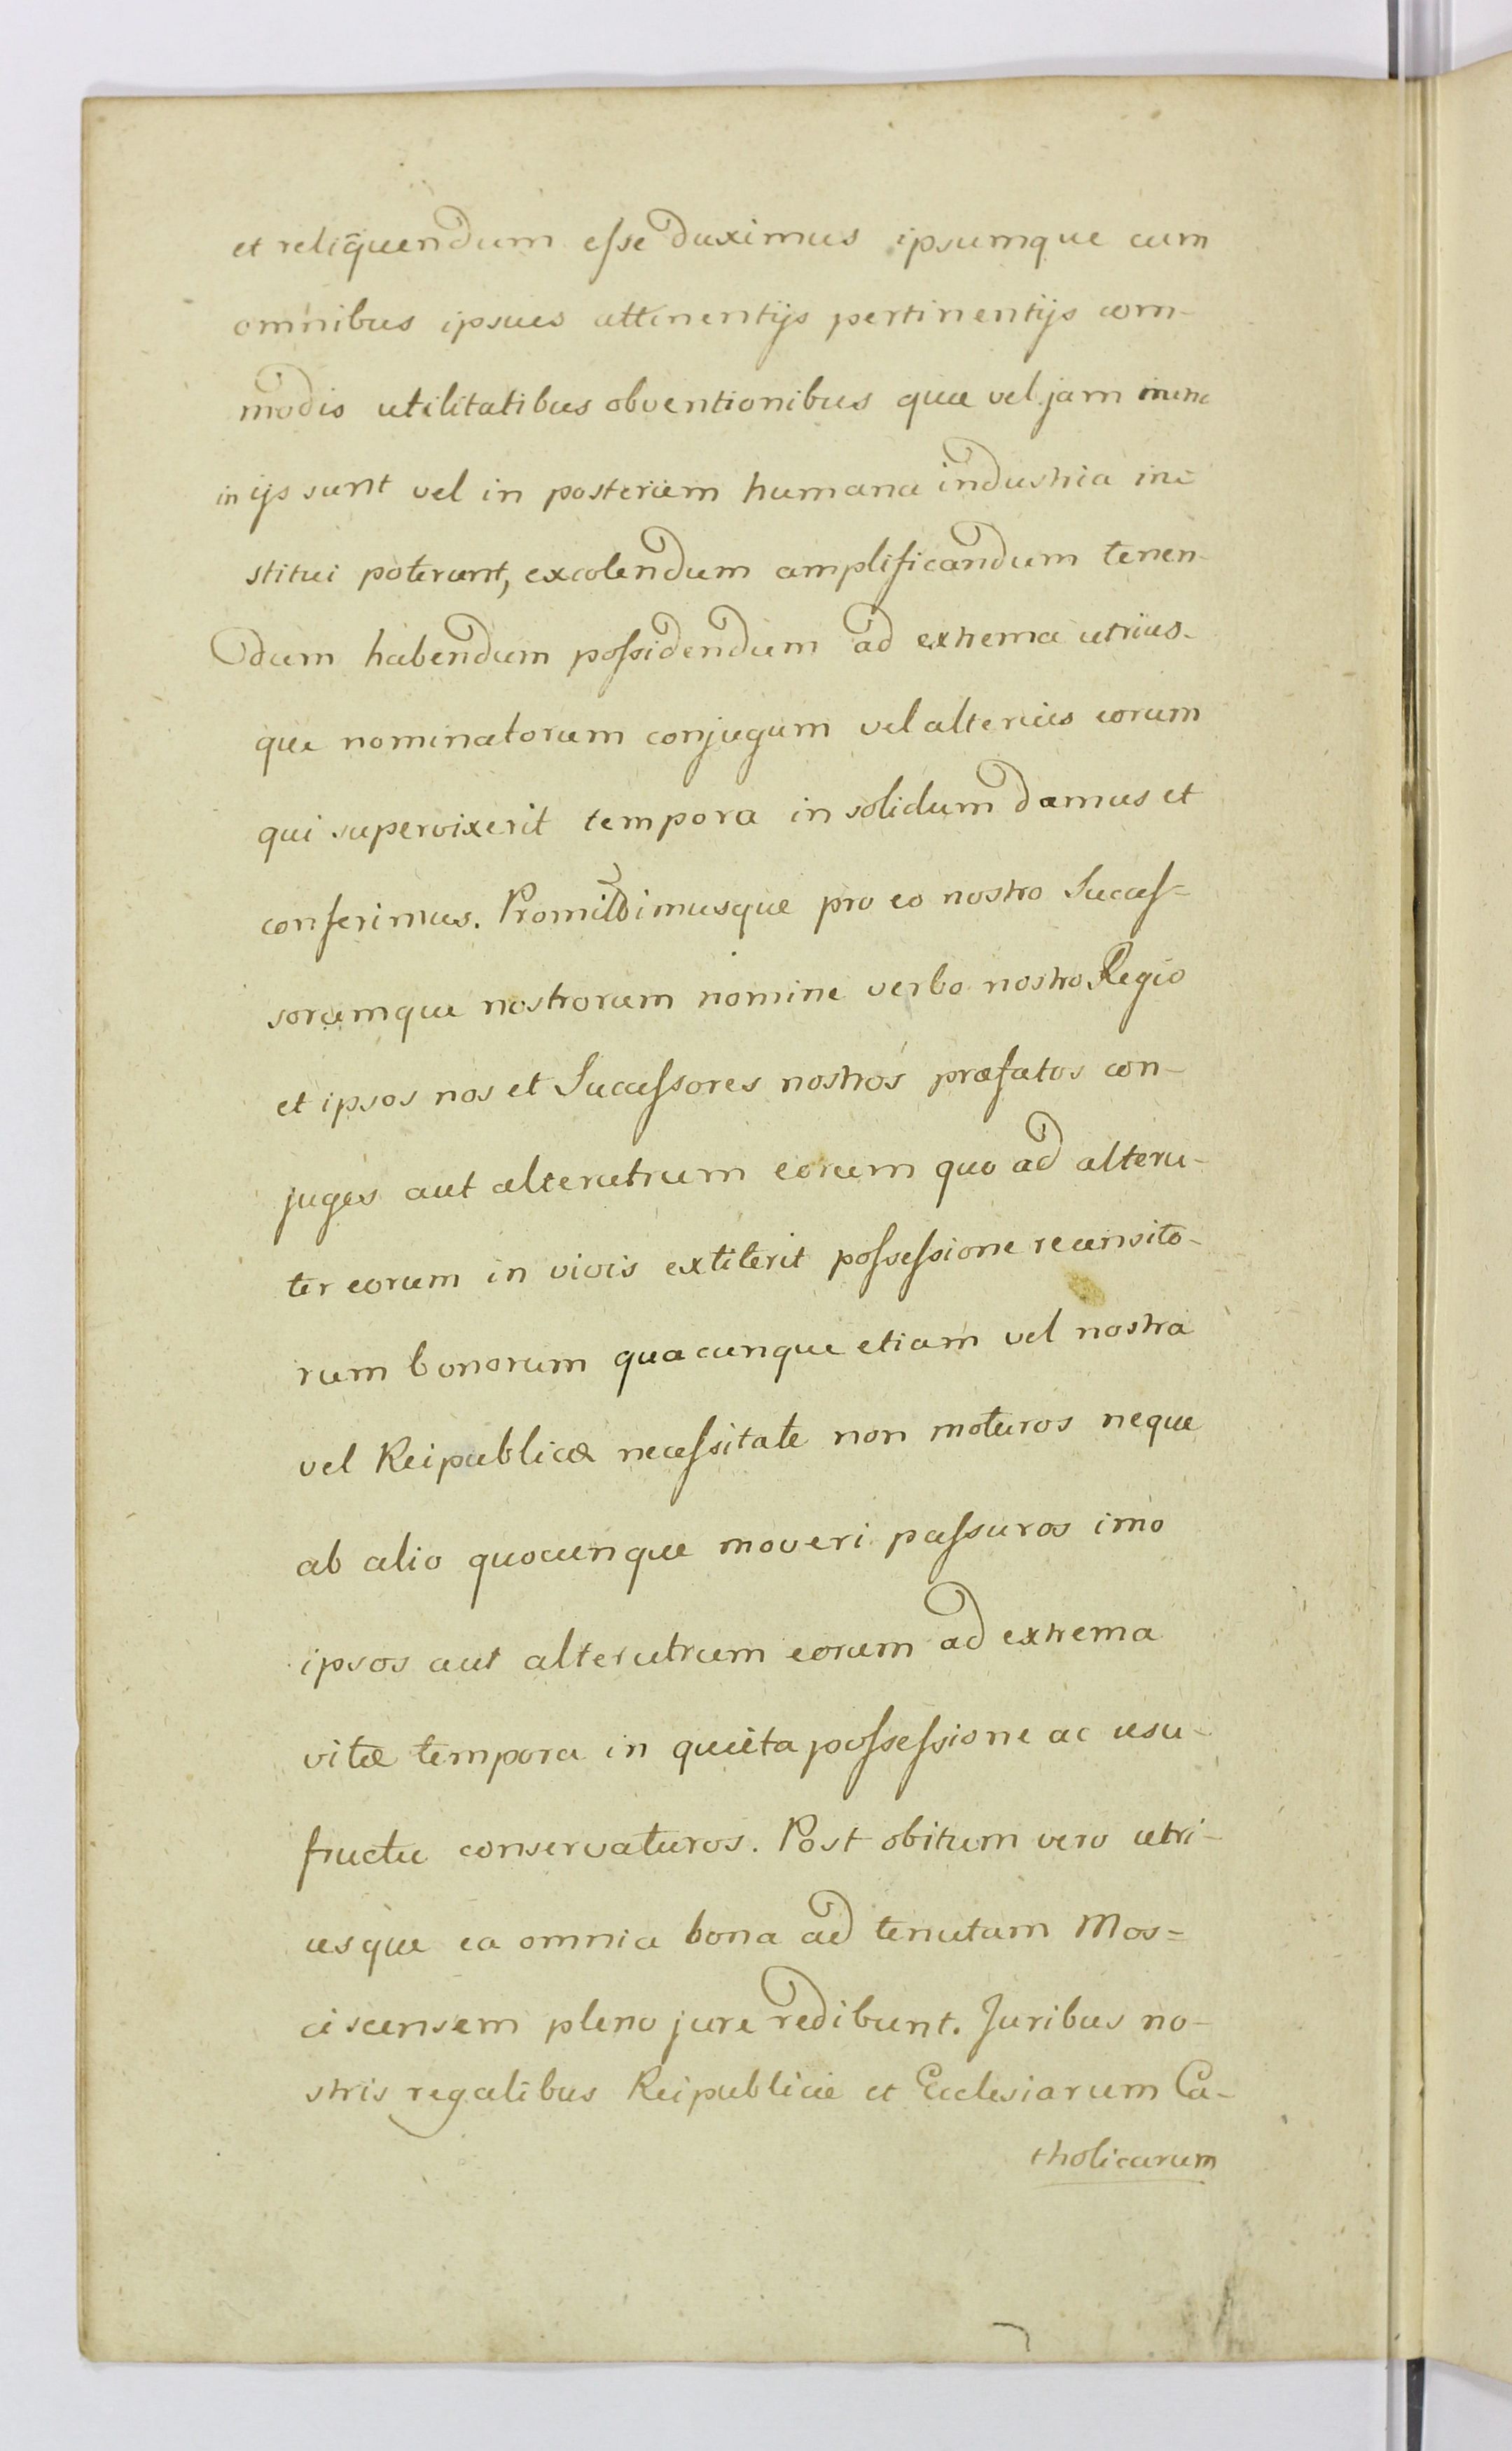 et reliq̄uendum eſse duximus ipsumque cum
omnibus ipsius attinentijs pertinentijs com-
modis utilitatibus obventionibus quæ vel jam nunc
in ijs sunt vel in posterum humana industria in-
stitui poterunt, excolendum amplificandum tenen-
dum habendum poſsidendum ad extrema utrius-
que nominatorum conjugum vel alterius eorum
qui supervixerit tempora in solidum damus et
conferimus. Promittimusque pro eo nostro Succeſ-
sorumque nostrorum nomine verbo nostro Regio
et ipsos nos et Succeſsores nostros præfatos con-
juges aut alterutrum eorum quo ad alteru-
ter eorum in vivis extiterit poſseſsione recensito-
rum bonorum quacunque etiam vel nostra
vel Reipublicæ neceſsitate non moturos neque
ab alio quocunque moveri paſsuros imo
ipsos aut alterutrum eorum ad extrema
vitæ tempora in quieta poſseſsione ac usu-
fructu conservaturos. Post obitum vero utri-
usque ea omnia bona ad tenutam Mos=
ciscensem pleno jure redibunt. Juribus no-
stris regalibus Reipublicæ et Ecclesiarum Ca-
tholicarum